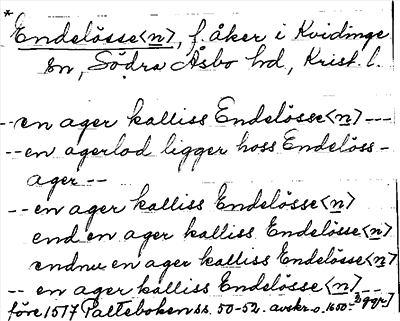 *
Endelösse<n>, f. åker i Kvidinge
sn, Södra Åsbo hd, Krist. l.
--en ager kalliss Endelösse<n> ---
--en agerlod ligger hoss Endelöss-
ager --
--en ager kalliss Endelösse<n>
end en ager kalliss Endelösse<n>
endnu en ager kalliss Endelösse<n>
-- en ager kalliss Endelösse<n> --
före 1517 Palteboken ss. 50-52. avskr. o. 1650.